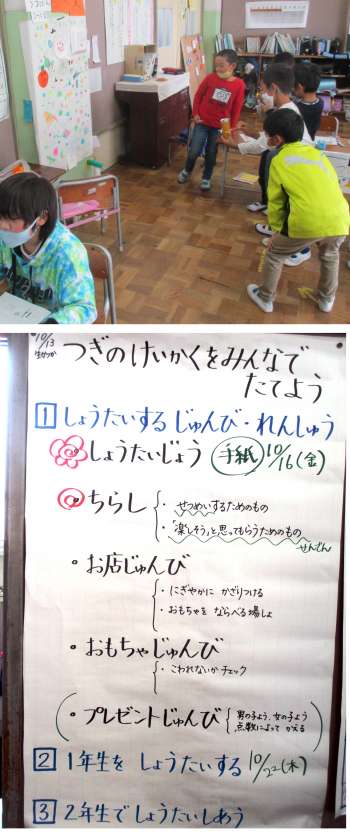 10/13
生かつか
つぎのけいかくをみんなで
たてよう
1 しょうたいする じゅんび・れんしゅう
しょうたいじょう 手紙 10/16(金)
ちらし
・せつめいするためのもの
・「楽しそう」と思ってもらうためのもの
せんでん
・お店じゅんび
・にぎやかに かざりつける
・おもちゃを ならべる場しょ
・おもちゃじゅんび
・こわれないか チェック
(・プレゼントじゅんび { 男の子よう、女の子よう
点数によって かえる )
2 1年生を しょうたいする 10/22(木)
3 2年生で しょうたいしあう